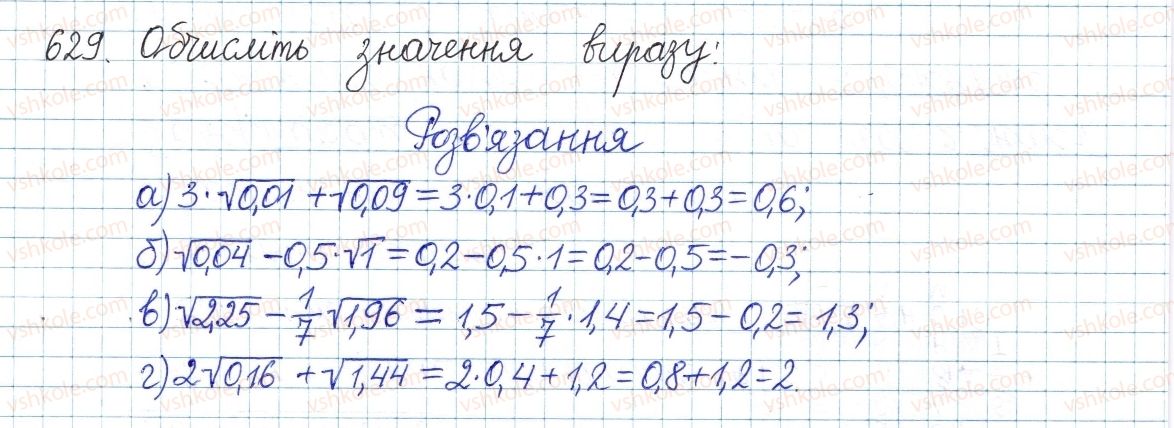 629. Обчисліть значення виразу:
Розв'язання
а) 3·√0,01 + √0,09 = 3·0,1 + 0,3 = 0,3 + 0,3 = 0,6;
б) √0,04 - 0,5·√1 = 0,2 - 0,5·1 = 0,2 - 0,5 = -0,3;
в) √2,25 - 1/7 √1,96 = 1,5 - 1/7·1,4 = 1,5 - 0,2 = 1,3;
г) 2√0,16 + √1,44 = 2·0,4 + 1,2 = 0,8 + 1,2 = 2.
vshkole.com